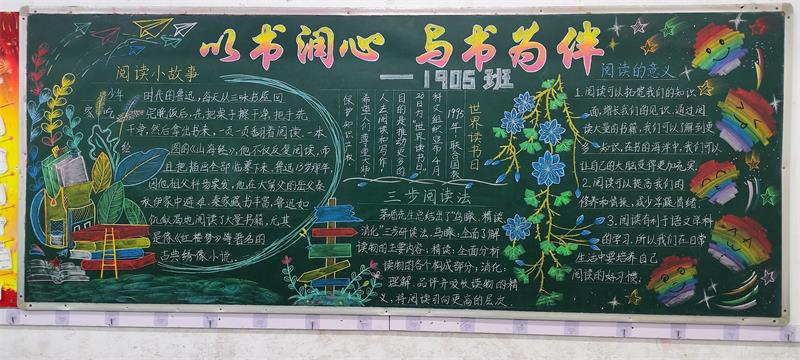 以书润心 与书为伴
——1905班
阅读小故事
少年时代的鲁迅,每天从三味书屋回
家,吃完晚饭后,先把桌子擦干净,把手洗
干净,然后拿出书来,一页一页翻看阅读一本
绘图的《山海经》,他不仅反复阅读,而
且把插图全部临摹下来。鲁迅13岁那年,
因他祖父科场案发,他在大舅父的岳父秦
秋伊家中避难,秦家藏书丰富,鲁迅如
饥似渴地阅读了大量书籍,尤其
是像《红楼梦》等著名的
古典绣像小说。
世界读书日
1995年,联合国教
科文组织宣布4月
23日为“世界读书日。
目的是推动更多的
人去阅读和写作,
希望人们尊重大师
保护知识产权
三步阅读法
茅盾先生总结出了“鸟瞰、精读
消化”三步研读法,鸟瞰:全面了解
读物的主要内容;精读:全面分析
读物的各个构成部分;消化:
理解、品评并发展读物的精
义,将阅读引向更高的层次。
阅读的意义
1.阅读可以拓宽我们的知识
面,增长我们的见识。通过阅
读大量的书籍,我们可以了解到更多
知识,在书的海洋中,我们可以
让自己的大脑变得更加充实。
2.阅读可以提高我们的
修养和情操,减少笨蹉情绪。
3.阅读有利于语文学科
的学习,所以我们在日常
生活中要培养自己
阅读的好习惯。